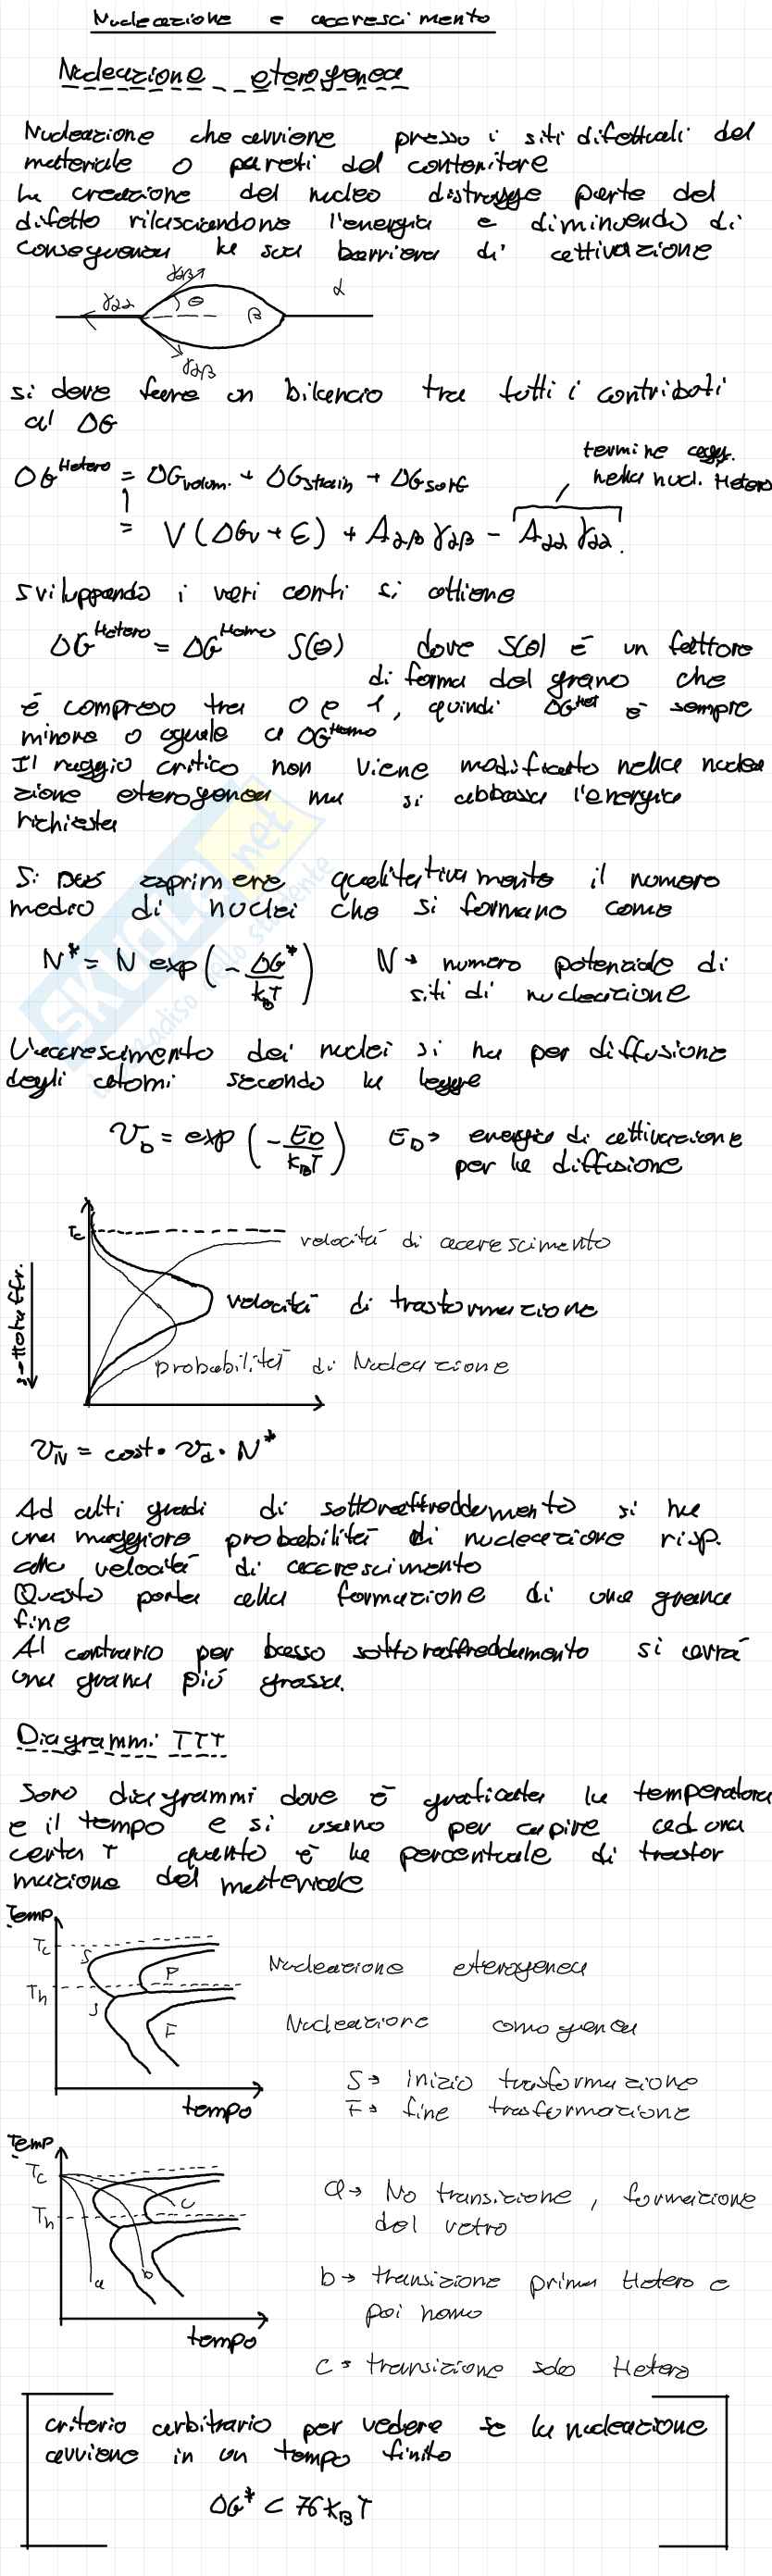 Nucleazione e accrescimento
Nucleazione eterogenea
Nucleazione che avviene presso i siti difettuali del
materiale o pareti del contenitore
La creazione del nucleo distrugge parte del
difetto rilasciandone l'energia e diminuendo di
conseguenza la sua barriera di attivazione
γαβ
γαα θ β α
γαβ
si deve fare un bilancio tra tutti i contributi
al ΔG
termine aggg.
nella nucl. Hetero
ΔG^Hetero = ΔGvolum. + ΔGstrain + ΔGsurf
= V(ΔGv + ε) + Aαβ γαβ - Aαα γαα.
sviluppando i vari conti si ottiene
ΔG^Hetero = ΔG^Homo S(θ) dove S(θ) è un fattore
di forma del grano che
è compreso tra 0 e 1, quindi ΔG^Het è sempre
minore o uguale a ΔG^Homo
Il raggio critico non viene modificato nella nuclea
zione eterogenea ma si abbassa l'energia
richiesta
Si può esprimere qualitativamente il numero
medio di nuclei che si formano come
N* = N exp(- ΔG*/kBT) N → numero potenziale di
siti di nucleazione
L'accrescimento dei nuclei si ha per diffusione
degli atomi secondo la legge
vD = exp(- ED/KBT) ED → energia di attivazione
per la diffusione
Tc
velocità di accrescimento
sottoraffr.
velocità di trasformazione
probabilità di Nucleazione
vN = cost • vd • N*
Ad alti gradi di sottoraffreddamento si ha
una maggiore probabilità di nucleazione risp.
alla velocità di accrescimento
Questo porta alla formazione di una grana
fine
Al contrario per basso sottoraffreddamento si avrà
una grana più grossa.
Diagrammi TTT
Sono diagrammi dove è graficata la temperatura
e il tempo e si usano per capire ad una
certa T quanto è la percentuale di trasfor
mazione del materiale
Temp
Tc S F Nucleazione eterogenea
Th
S F Nucleazione omogenea
S → inizio trasformazione
F → fine trasformazione
tempo
Temp
Tc
c
a → No transizione, formazione
del vetro
Th
a b
b → transizione prima Hetero e
poi homo
tempo
c → transizione solo Hetero
criterio arbitrario per vedere se la nucleazione
avviene in un tempo finito
ΔG* < 76 KBT
SKUOLA.net